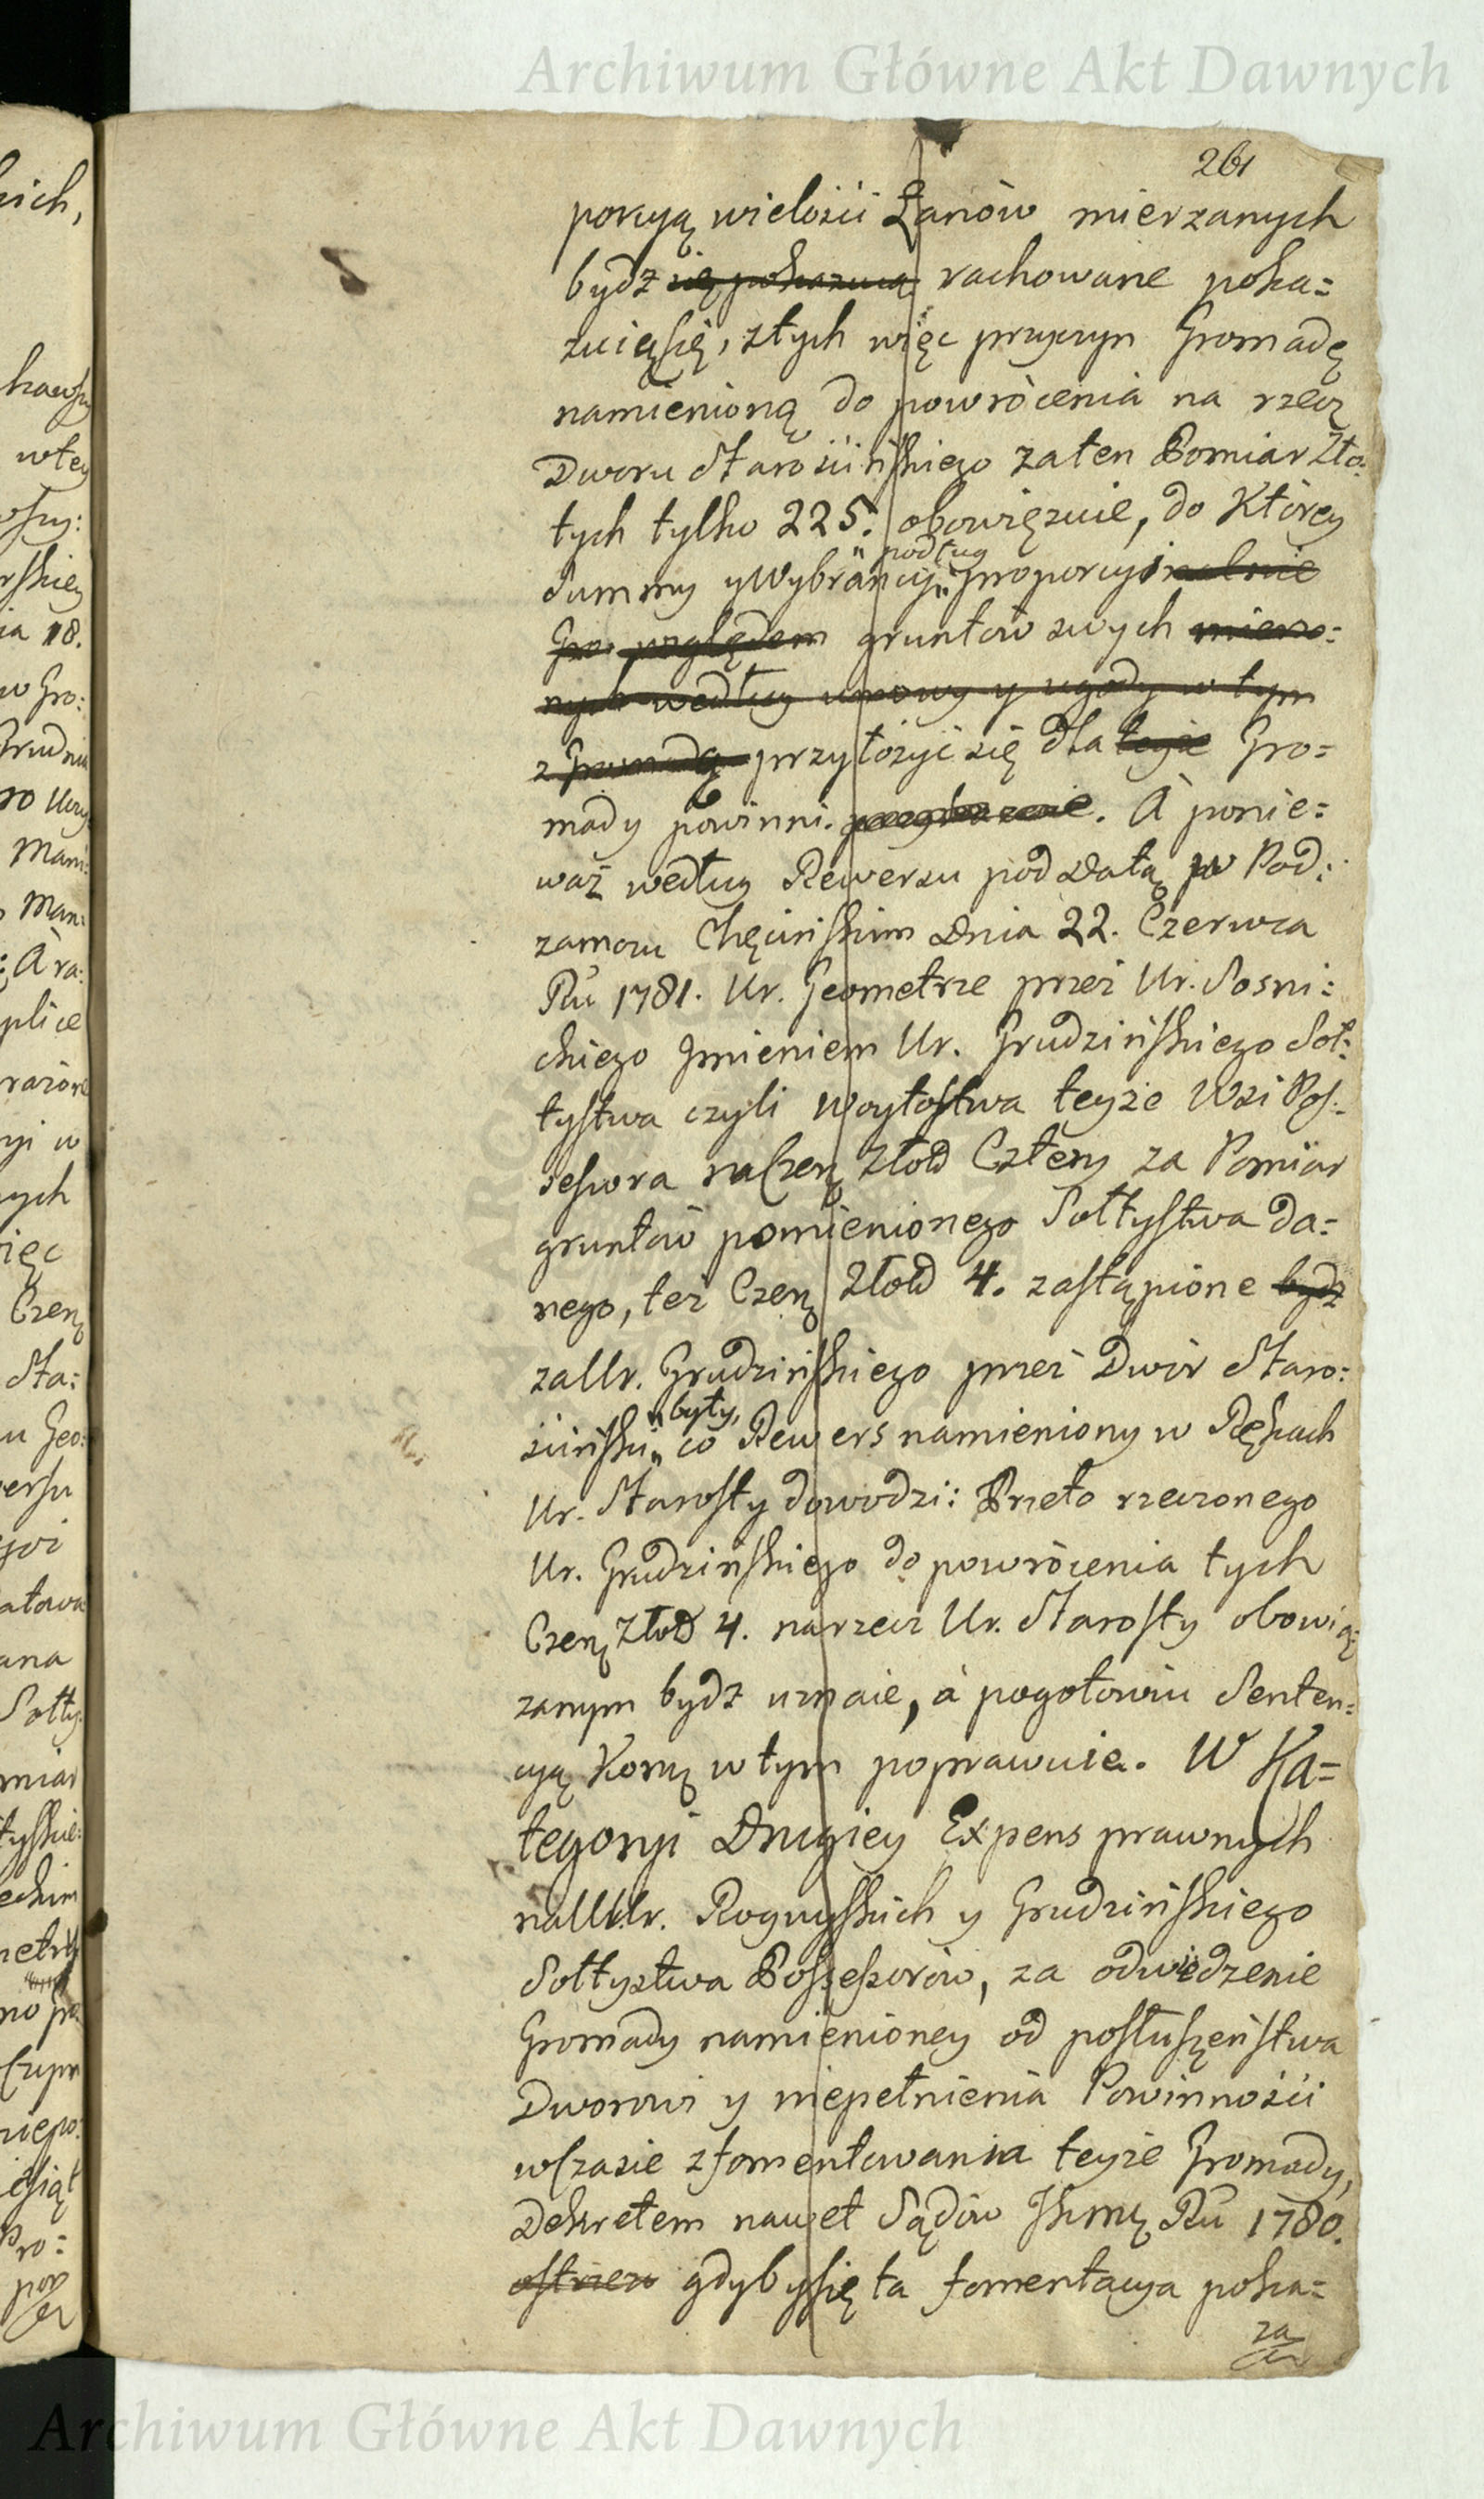 Archiwum Główne Akt Dawnych
261
porcyą wielości Łanów mierzanych
bydź się pokazuią rachowane poka=
zuiąsię, ztych więc przyczyn Gromadę
namienioną do powrócenia na rzecz
Dworu Starościńskiego zaten Pomiar Zło:
tych tylko 225. obowięzuie, do Którey
podług
Summy yWybrańcy proporcyi nalnie
Gro. względem gruntów swych mierzo=
nych według umowy y ugody w tym
z Gromadą przyłożyć się dla teyże Gro=
mady powinni. A ponie=
waż według Rewersu pod Datą w Pod:
zamczu Chęcińskim Dnia 22. Czerwca
Ru 1781. Ur. Geometrze przez Ur. Sosni:
ckiego Jmieniem Ur. Grudzińskiego Soł:
tystwa czyli Woytostwa teyże Wsi Pos:
sessora naCzerw Złotd Cztery za Pomiar
gruntów pomienionego Sołtystwa da=
nego, też Czerw Złotd 4. zastąpione bydź
zaUr. Grudzińskiego przez Dwór Staro:
były,
ściński co Rewers namieniony w Rękach
Ur. Starosty dowodzi: Przeto rzeczonego
Ur. Grudzińskiego do powrócenia tych
Czerw Złotd 4. narzecz Ur. Starosty obowią:
zanym bydź uznaie, á pogotowiu Senten=
cyą Komą wtym poprawuie. W Ka=
tegoryi Drugiey Expens prawnych
naUUr. Rogoyskich y Grudzińskiego
Sołtystwa Possessorów, za odwiedzenie
Gromady namienioney od posłuszeństwa
Dworowi y niepełnienia Powinności
wczasie zfomentowania teyże Gromady,
Dekretem nawet Sądów Jkmę Ru 1780.
ostrzeż gdybysię ta fomentacya poka=
za
Archiwum Główne Akt Dawnych